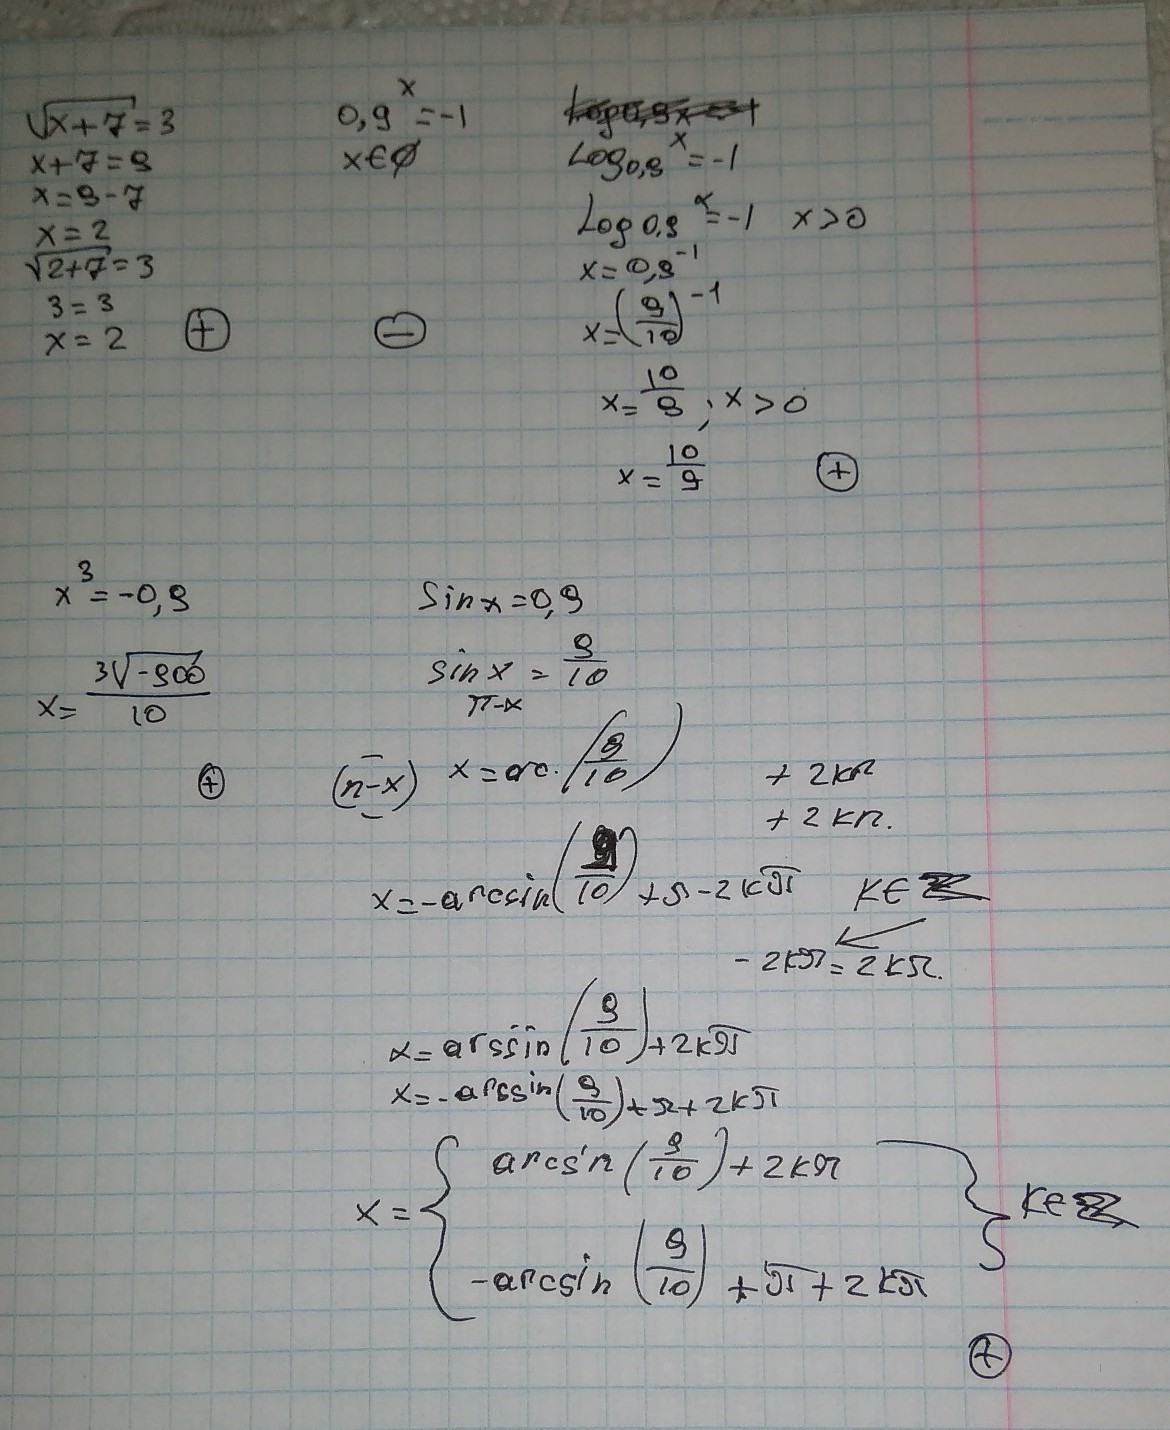 √x+7=3
x+7=9
x=9-7
x=2
√2+7=3
3=3
x=2 ⊕
0,9^x=-1
x∈∅
⊖
Log0,9^x=-1
Log0,9^x=-1 x>0
x=0,9^-1
x=(9/10)^-1
x=10/9; x>0
x=10/9 ⊕
x^3=-0,9
x=3√-900/10
⊕
Sinx=0,9
sinx=9/10
π-x
(π-x) x=arc.(9/10) +2kπ
+2kπ.
x=-arcsin(9/10)+π-2kπ K∈Z
-2kπ=2kπ.
x=arssin(9/10)+2kπ
x=-arssin(9/10)+π+2kπ
x={ arcsin(9/10)+2kπ
-arcsin(9/10)+π+2kπ } K∈Z
⊕